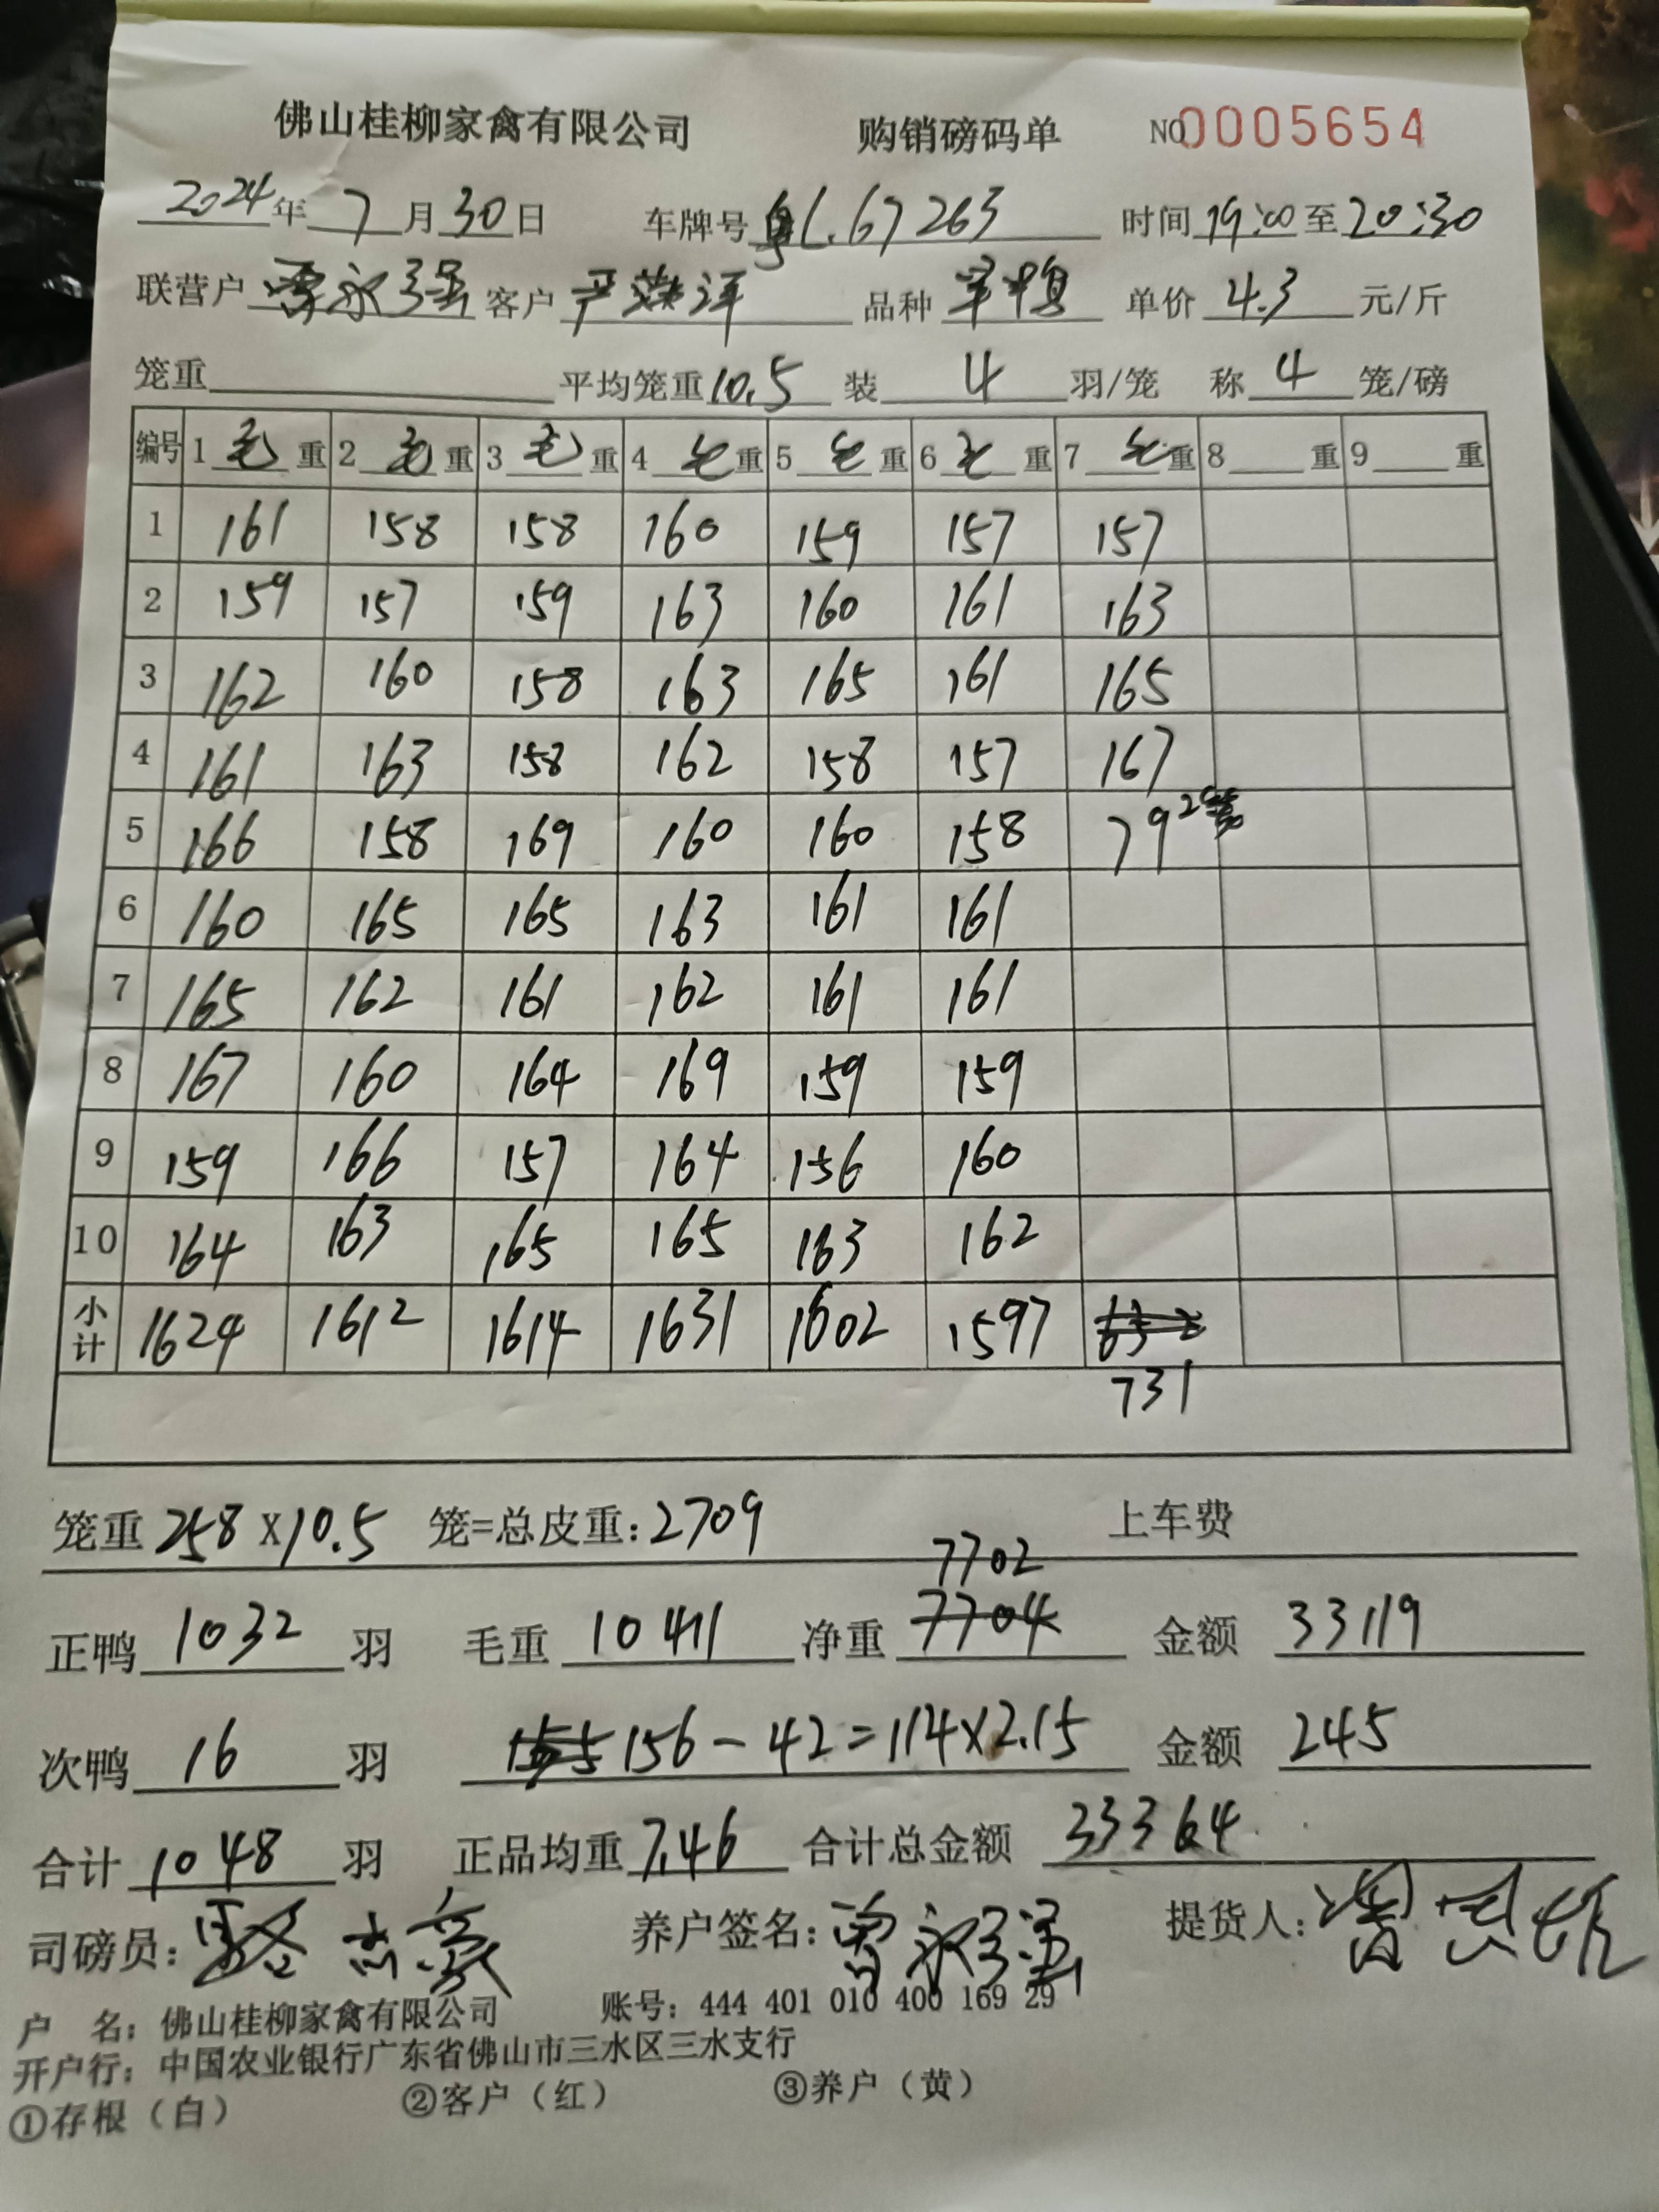 佛山桂柳家禽有限公司 购销磅码单 NO 0005654
2024年 7 月 30 日 车牌号 粤L.67263 时间 19:00 至 20:30
联营户 曾永强 客户 严 洋 品种 单价 4.3 元/斤
笼重 平均笼重 10.5 装 4 羽/笼 称 4 笼/磅
编号 1 毛 重 2 毛 重 3 毛 重 4 毛 重 5 毛 重 6 毛 重 7 毛 重 8 重 9 重
1 161 158 158 160 159 157 157
2 159 157 159 163 160 161 163
3 162 160 158 163 165 161 165
4 161 163 158 162 158 157 167
5 166 158 169 160 160 158 79 2
6 160 165 165 163 161 161
7 165 162 161 162 161 161
8 167 160 164 169 159 159
9 159 166 157 164 156 160
10 164 163 165 165 163 162
小计 1624 1612 1614 1631 1602 1597 632
731
笼重 258 X 10.5 笼=总皮重: 2709 上车费
7702
正鸭 1032 羽 毛重 10411 净重 7704 金额 33119
次鸭 16 羽 155 156 - 42 = 114 X 2.15 金额 245
合计 1048 羽 正品均重 7.46 合计总金额 33364
司磅员: 骆杰豪 养户签名: 曾永强 提货人:
户 名: 佛山桂柳家禽有限公司 账号: 444 401 010 400 169 29
开户行: 中国农业银行广东省佛山市三水区三水支行
①存根（白） ②客户（红） ③养户（黄）